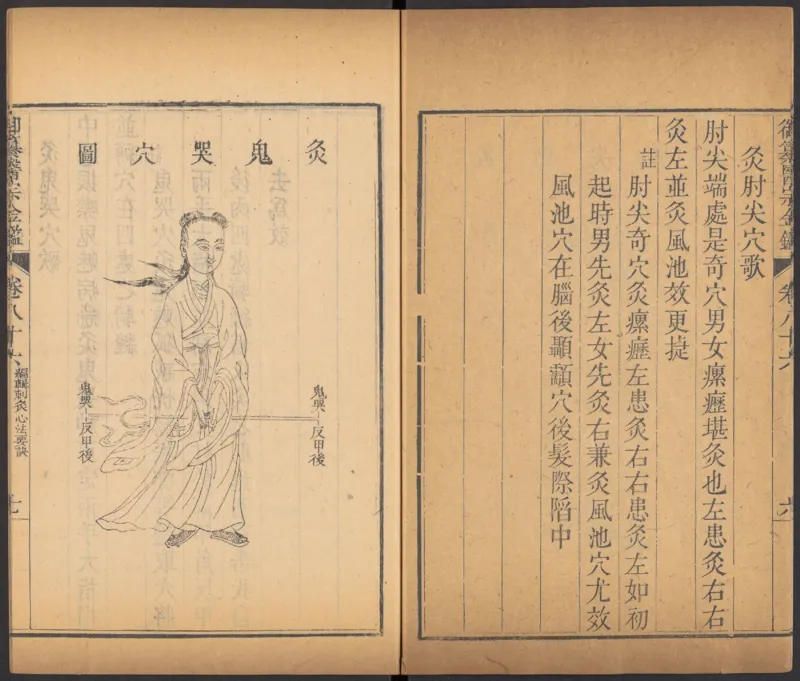 灸肘尖穴歌
肘尖端處是奇穴男女瘰癧堪灸也左患灸右右
灸左並灸風池效更㨗
註
肘尖奇穴灸瘰癧左患灸右右患灸左如初
起時男先灸左女先灸右兼灸風池穴尤效
風池穴在腦後顳顬穴後髮際陷中
卷八十六
六
灸鬼哭穴圖
鬼哭
反甲後
鬼哭
反甲後
卷八十六
編輯刺灸心法要訣
七